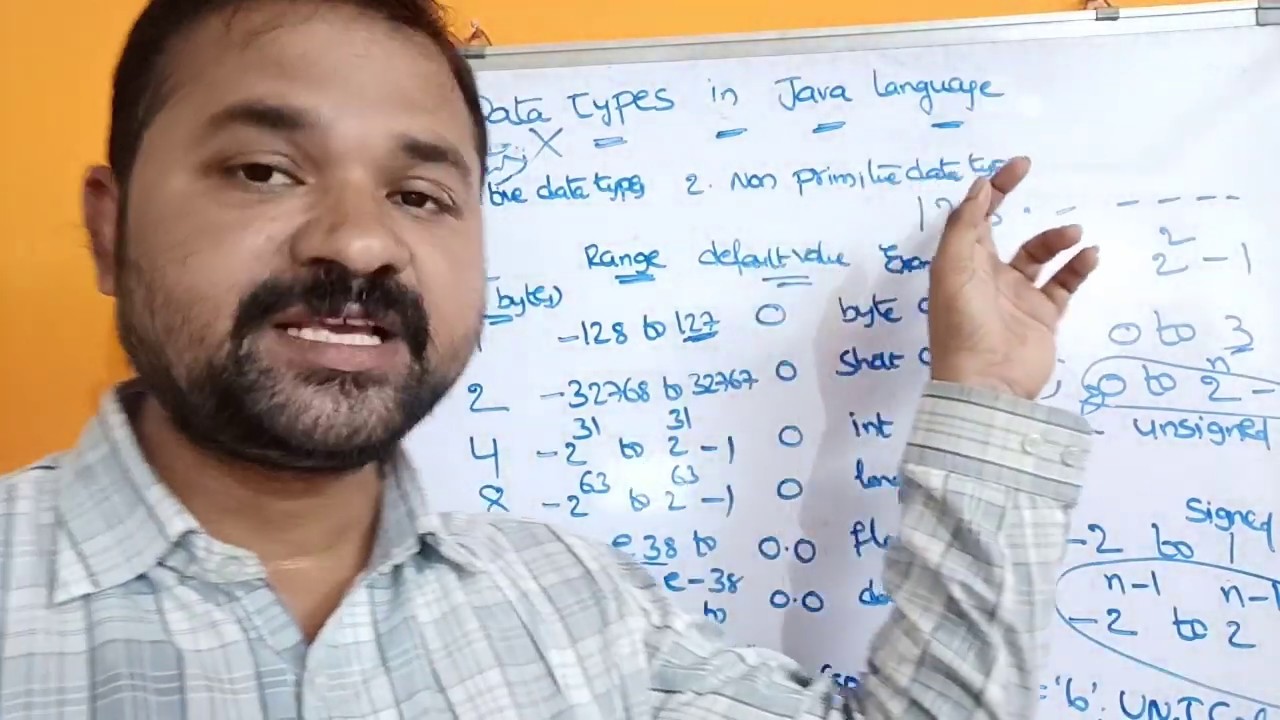 Data Types in Java language
data types 2. Non Primitive data
2
2 - 1
Range default value
bytes)
-128 to 127 0 byte
0 to 3
2 -32768 to 32767 0 Short
n
0 to 2 -
unsigned
31 31
4 -2 to 2 -1 0 int
63 63
8 -2 to 2 -1 0
Signed
e38 to 0.0
-2 to 1
e-38 0.0
to
n-1 n-1
-2 to 2
='b'.